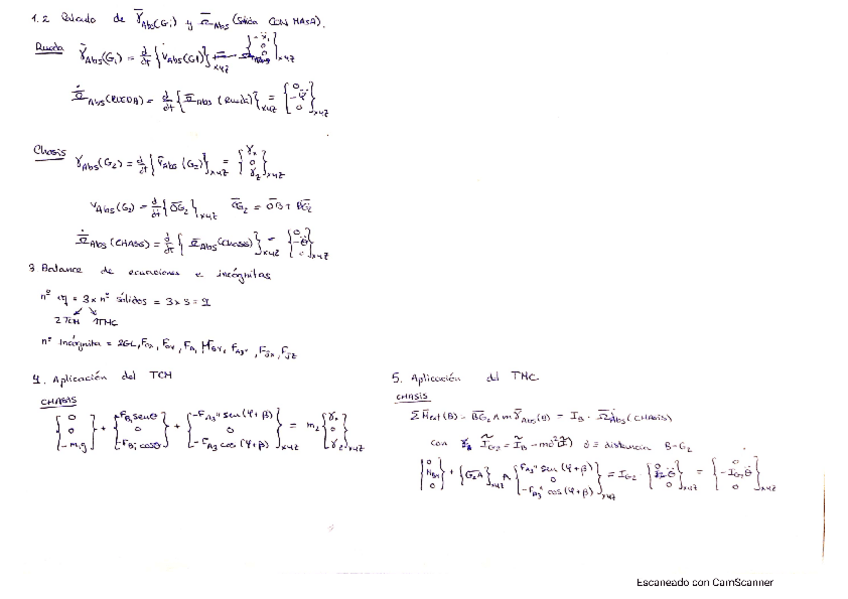 1.2 Calculado de γ̄Abs(G₁) y Ω̄Abs (Sólido CON MASA).
Rueda γ̄Abs(G₁) = d/dt {v̄Abs(G1)}xyz = {-ẍ, 0, 0}xyz
Ω̇Abs(RUEDA) = d/dt {Ω̄Abs (Rueda)}xyz = {0, -Ψ̈, 0}xyz
Chasis γAbs(G₂) = d/dt {v̄Abs(G₂)}xyz = {γx, 0, γz}xyz
vAbs(G₂) = d/dt {ŌG₂}xyz ŌG₂ = ŌB + BG₂
Ω̇Abs(CHASIS) = d/dt {Ω̄Abs(CHASIS)}xyz = {0, -θ̈, 0}xyz
3. Balance de ecuaciones e incógnitas
nº eq = 3 x nº sólidos = 3 x 3 = 9
2TCM 1TMC
nº incógnita = 2GL,
4. Aplicación del TCM
CHASIS
{0, 0, -m₂g} + {FBi senθ, 0, -FBi cosθ} + {-FA3'' sen(Ψ+β), 0, -FA3 cos(Ψ+β)}xyz = m₂ {γx, 0, γz}xyz
5. Aplicación del TMC.
CHASIS
ΣM̄ext(B) - BG₂ ∧ m γ̄Abs(B) = IB · Ω̇Abs(CHASIS)
con IG₂ = IB - md² d = distancia B-G₂
+ {G₂A}xyz ∧ {FA3'' sen(Ψ+β), 0, -FA3'' cos(Ψ+β)}xyz = IG₂ xyz = {0, -IG₂θ̈, 0}xyz
Escaneado con CamScanner